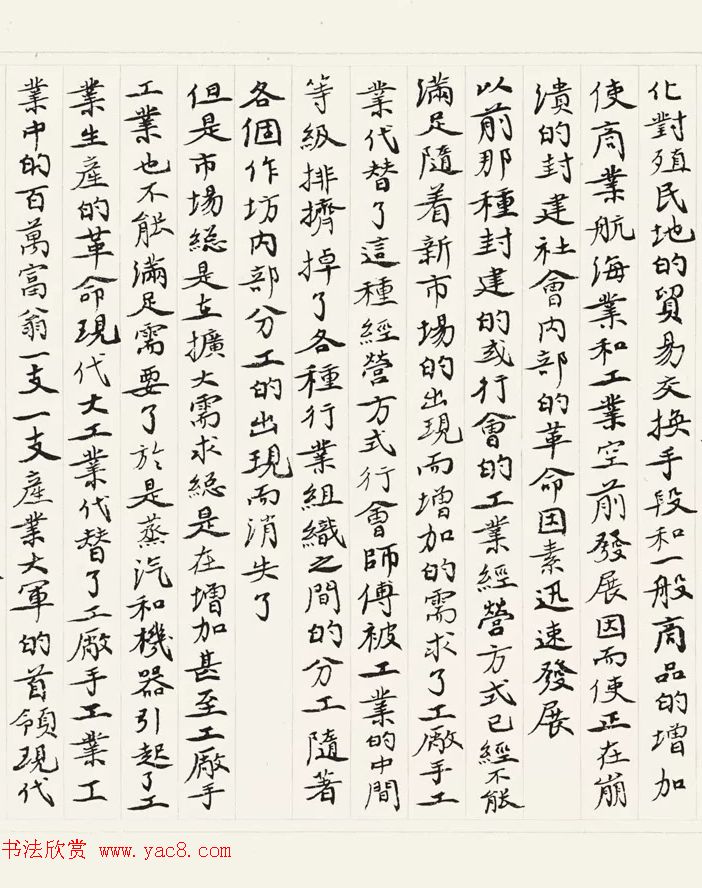 化對殖民地的貿易交換手段和一般商品的增加
使商業航海業和工業空前發展因而使正在崩
潰的封建社會內部的革命因素迅速發展
以前那種封建的或行會的工業經營方式已經不能
滿足隨着新市場的出現而增加的需求了工廠手工
業代替了這種經營方式行會師傅被工業的中間
等級排擠掉了各種行業組織之間的分工隨著
各個作坊內部分工的出現而消失了
但是市場總是在擴大需求總是在增加甚至工廠手
工業也不能滿足需要了於是蒸汽和機器引起了工
業生產的革命現代大工業代替了工廠手工業工
業中的百萬富翁一支一支產業大軍的首領現代
书法欣赏 www.yac8.com